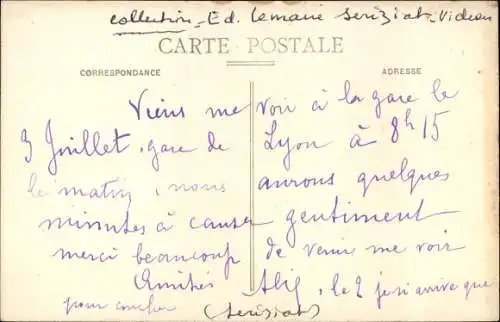 collection - Ed. Lemaire Seriziat - Videau
CARTE POSTALE
CORRESPONDANCE
ADRESSE
Viens me voir à la gare le
3 Juillet, gare de Lyon à 8h15
le matin, nous aurons quelques
minutes à causer gentiment
merci beaucoup de venir me voir
Amitiés le 2 j'arrive que
pour coucher (Seriziat)